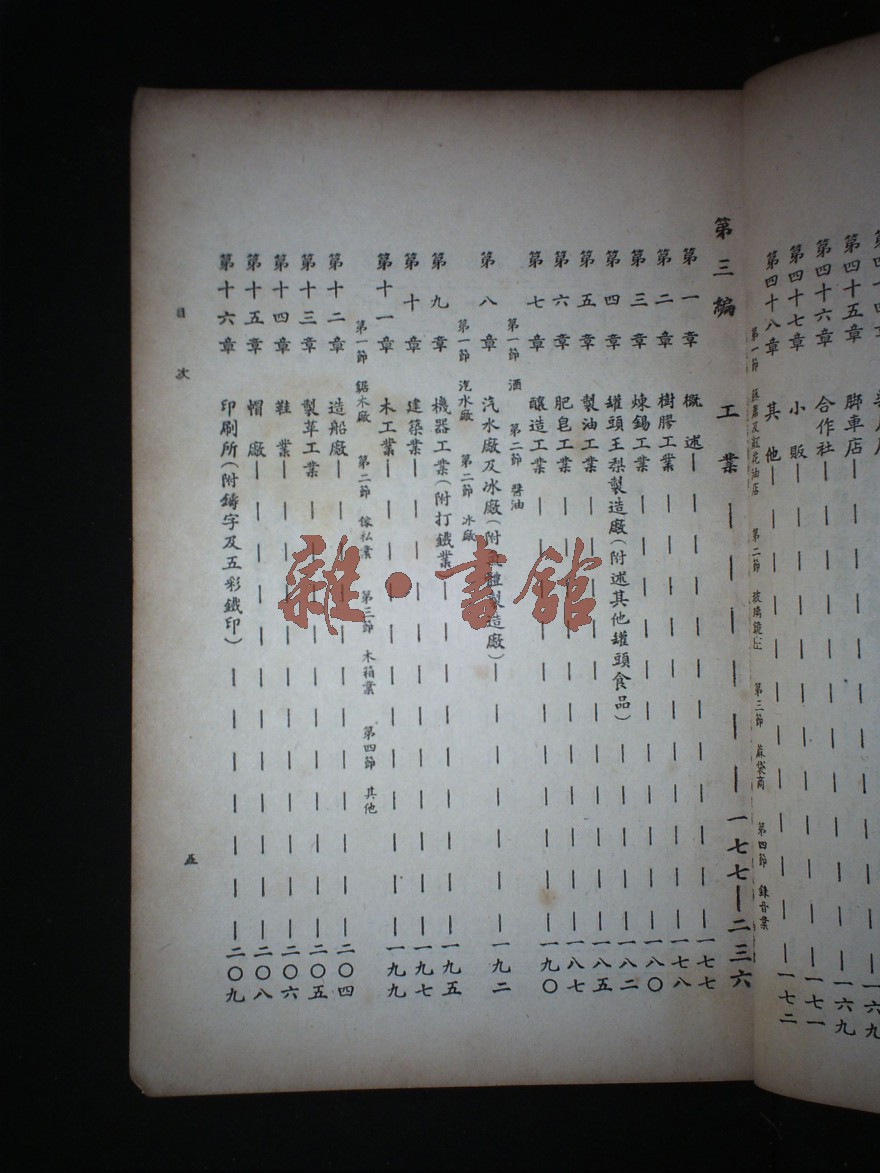 第四十五章 脚車店 一六九
第四十六章 合作社 一六九
第四十七章 小販 一七一
第四十八章 其他 一七二
第一節 第二節 第三節 第四節
第三編 工業 一七七—二三六
第一章 概述 一七七
第二章 樹膠工業 一七八
第三章 煉錫工業 一八〇
第四章 罐頭王梨製造廠(附述其他罐頭食品) 一八二
第五章 製油工業 一八五
第六章 肥皂工業 一八七
第七章 釀造工業 一九〇
第一節 酒 第二節 醬油
第八章 汽水廠及冰廠(附 製造廠) 一九二
第一節 汽水廠 第二節 冰廠
第九章 機器工業(附打鐵業) 一九五
第十章 建築業 一九七
第十一章 木工業 一九九
第一節 鋸木廠 第二節 傢私業 第三節 木箱業 第四節 其他
第十二章 造船廠 二〇四
第十三章 製革工業 二〇五
第十四章 鞋業 二〇六
第十五章 帽廠 二〇八
第十六章 印刷所(附鑄字及五彩鐵印) 二〇九
目次
五
雜·書館